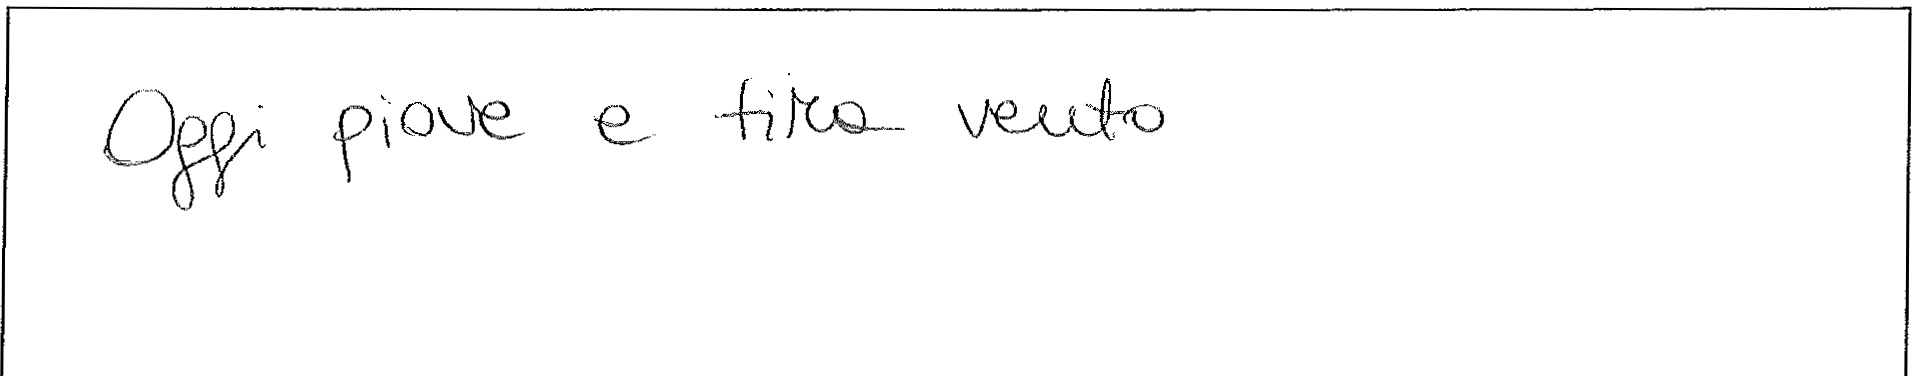 Oggi piove e tira vento